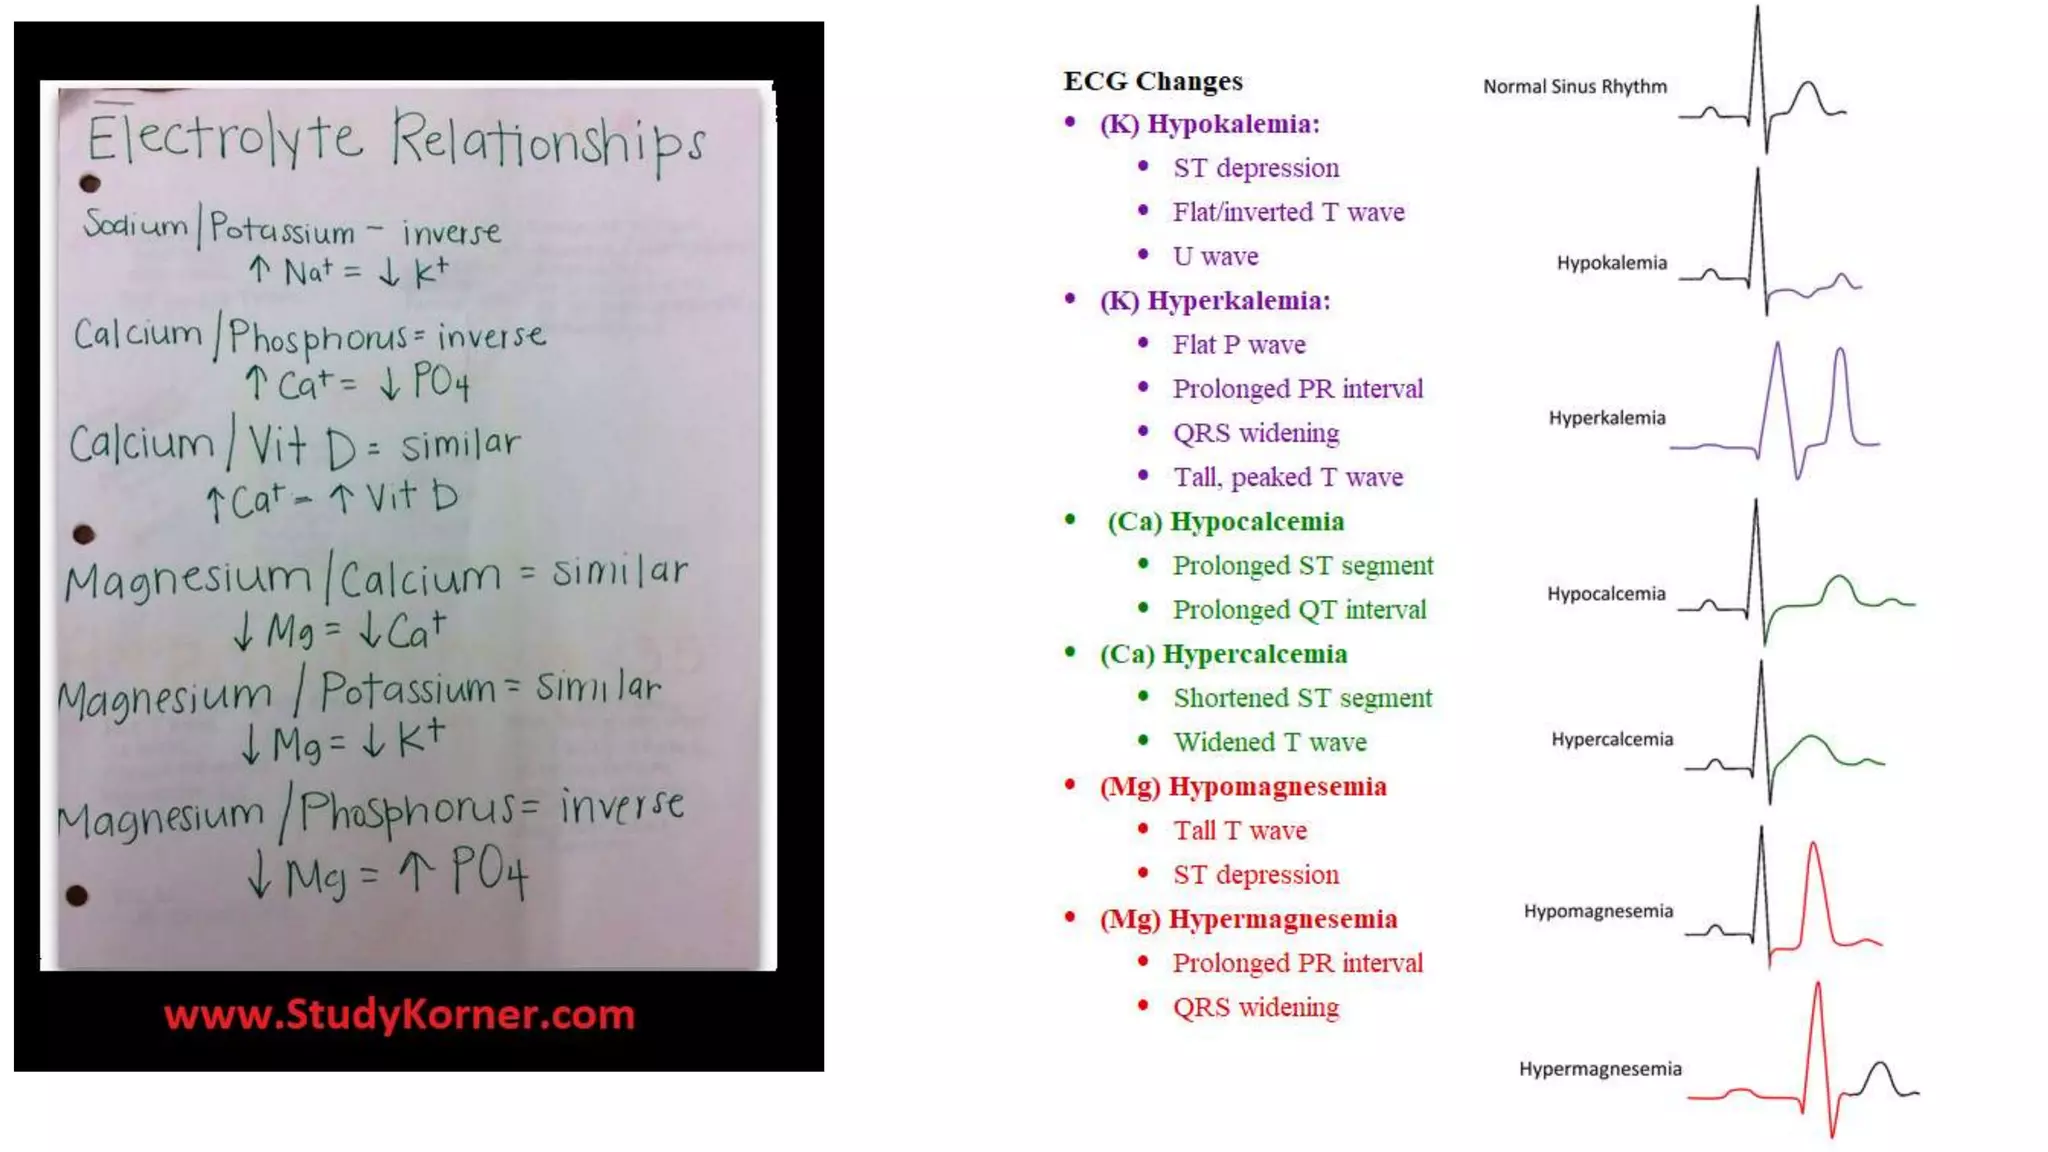 Electrolyte Relationships
Sodium/Potassium - inverse
↑ Na+ = ↓ K+
Calcium/Phosphorus = inverse
↑ Ca+ = ↓ PO4
Calcium/Vit D = similar
↑ Ca+ = ↑ Vit D
Magnesium/Calcium = similar
↓ Mg = ↓ Ca+
Magnesium/Potassium = similar
↓ Mg = ↓ K+
Magnesium/Phosphorus = inverse
↓ Mg = ↑ PO4
www.StudyKorner.com
ECG Changes
• (K) Hypokalemia:
• ST depression
• Flat/inverted T wave
• U wave
• (K) Hyperkalemia:
• Flat P wave
• Prolonged PR interval
• QRS widening
• Tall, peaked T wave
• (Ca) Hypocalcemia
• Prolonged ST segment
• Prolonged QT interval
• (Ca) Hypercalcemia
• Shortened ST segment
• Widened T wave
• (Mg) Hypomagnesemia
• Tall T wave
• ST depression
• (Mg) Hypermagnesemia
• Prolonged PR interval
• QRS widening
Normal Sinus Rhythm
Hypokalemia
Hyperkalemia
Hypocalcemia
Hypercalcemia
Hypomagnesemia
Hypermagnesemia